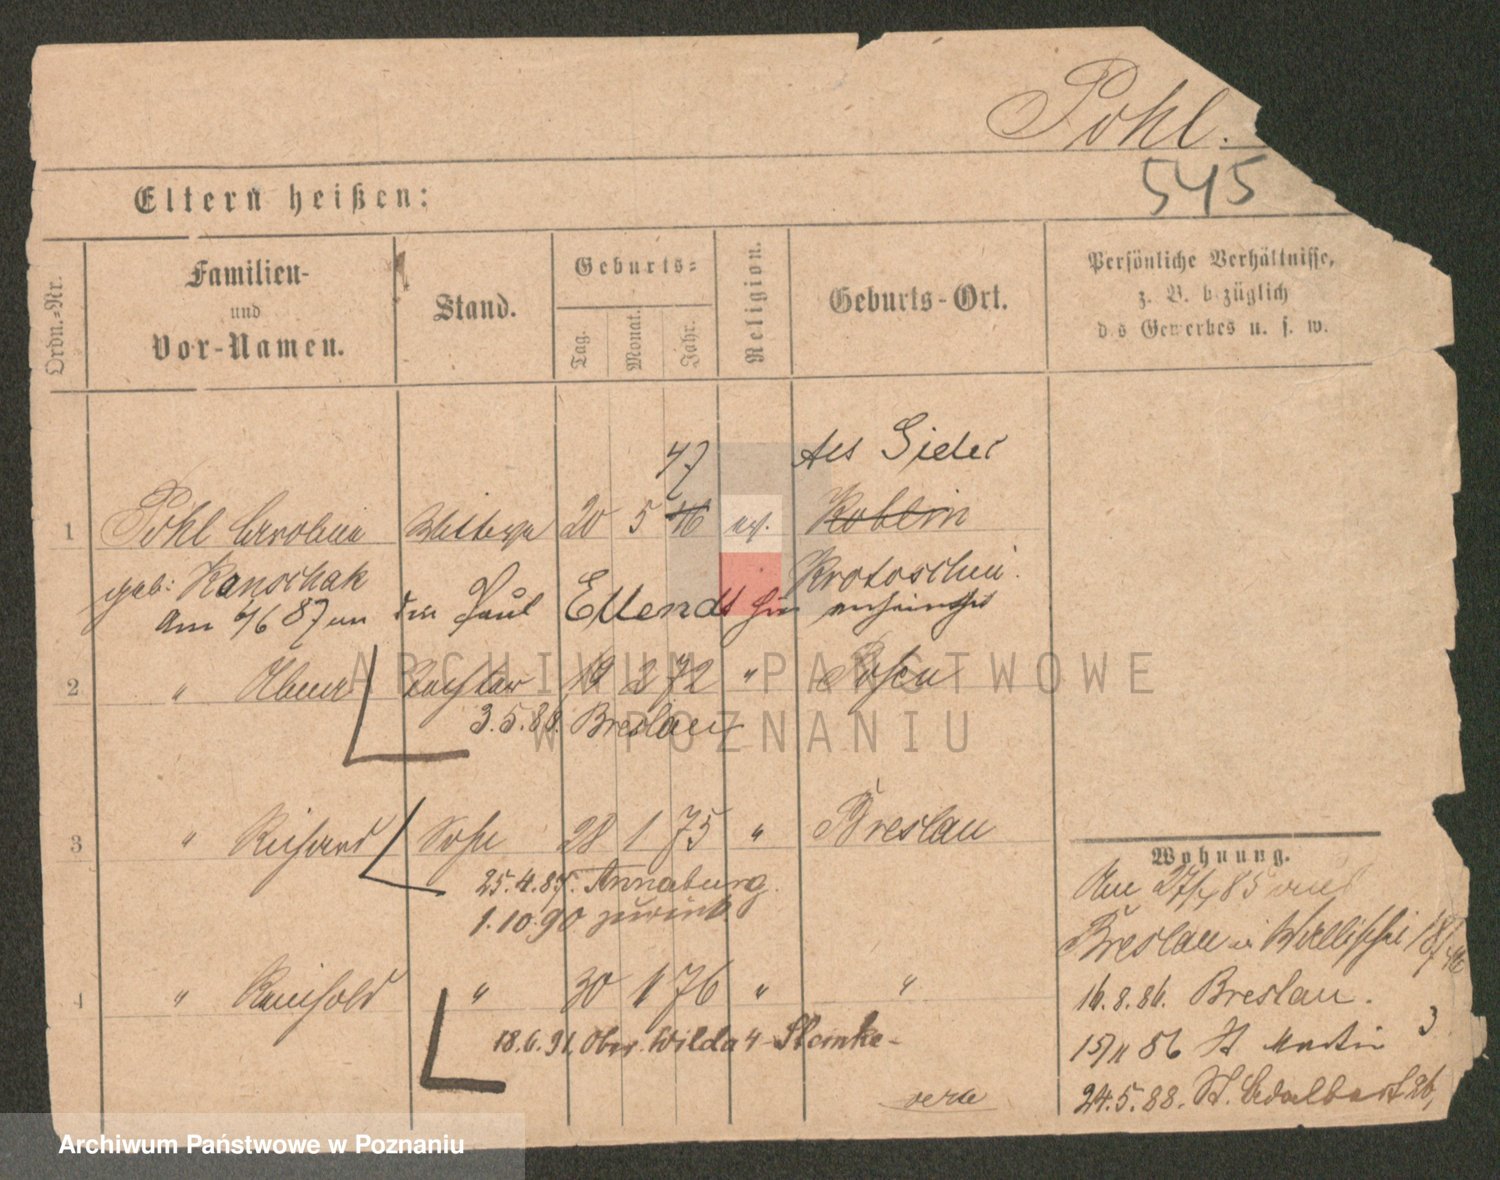 Pohl.
545
Eltern heißen:
Ordn.-Nr.
Familien-
und
Vor-Namen.
Stand.
Geburts-
Tag.
Monat.
Jahr.
Religion.
Geburts-Ort.
Persönliche Verhältnisse,
z. B. bezüglich
des Gewerbes u. s. w.
47
1 Pohl Wittwe 20 5 46 ev. Koblin
geb: Kanschak Krotoschin.
Am 4/6 87 Paul
2 " 19 2 72 " Posen
3.5.88. Breslau
3 " Richard Sohn 28 1 75 " Breslau
25.4.87. Annaburg.
1.10.90 zurück
4 " Reinhold " 30 1 76 " "
18.6.91. Ober Wilda 4
Wohnung.
Am 27/4 85 aus
Breslau Wallischei
16.8.86. Breslau.
15/11 86 St Martin 3
24.5.88. St. Adalbert 26,
ARCHIWUM PAŃSTWOWE
W POZNANIU
Archiwum Państwowe w Poznaniu